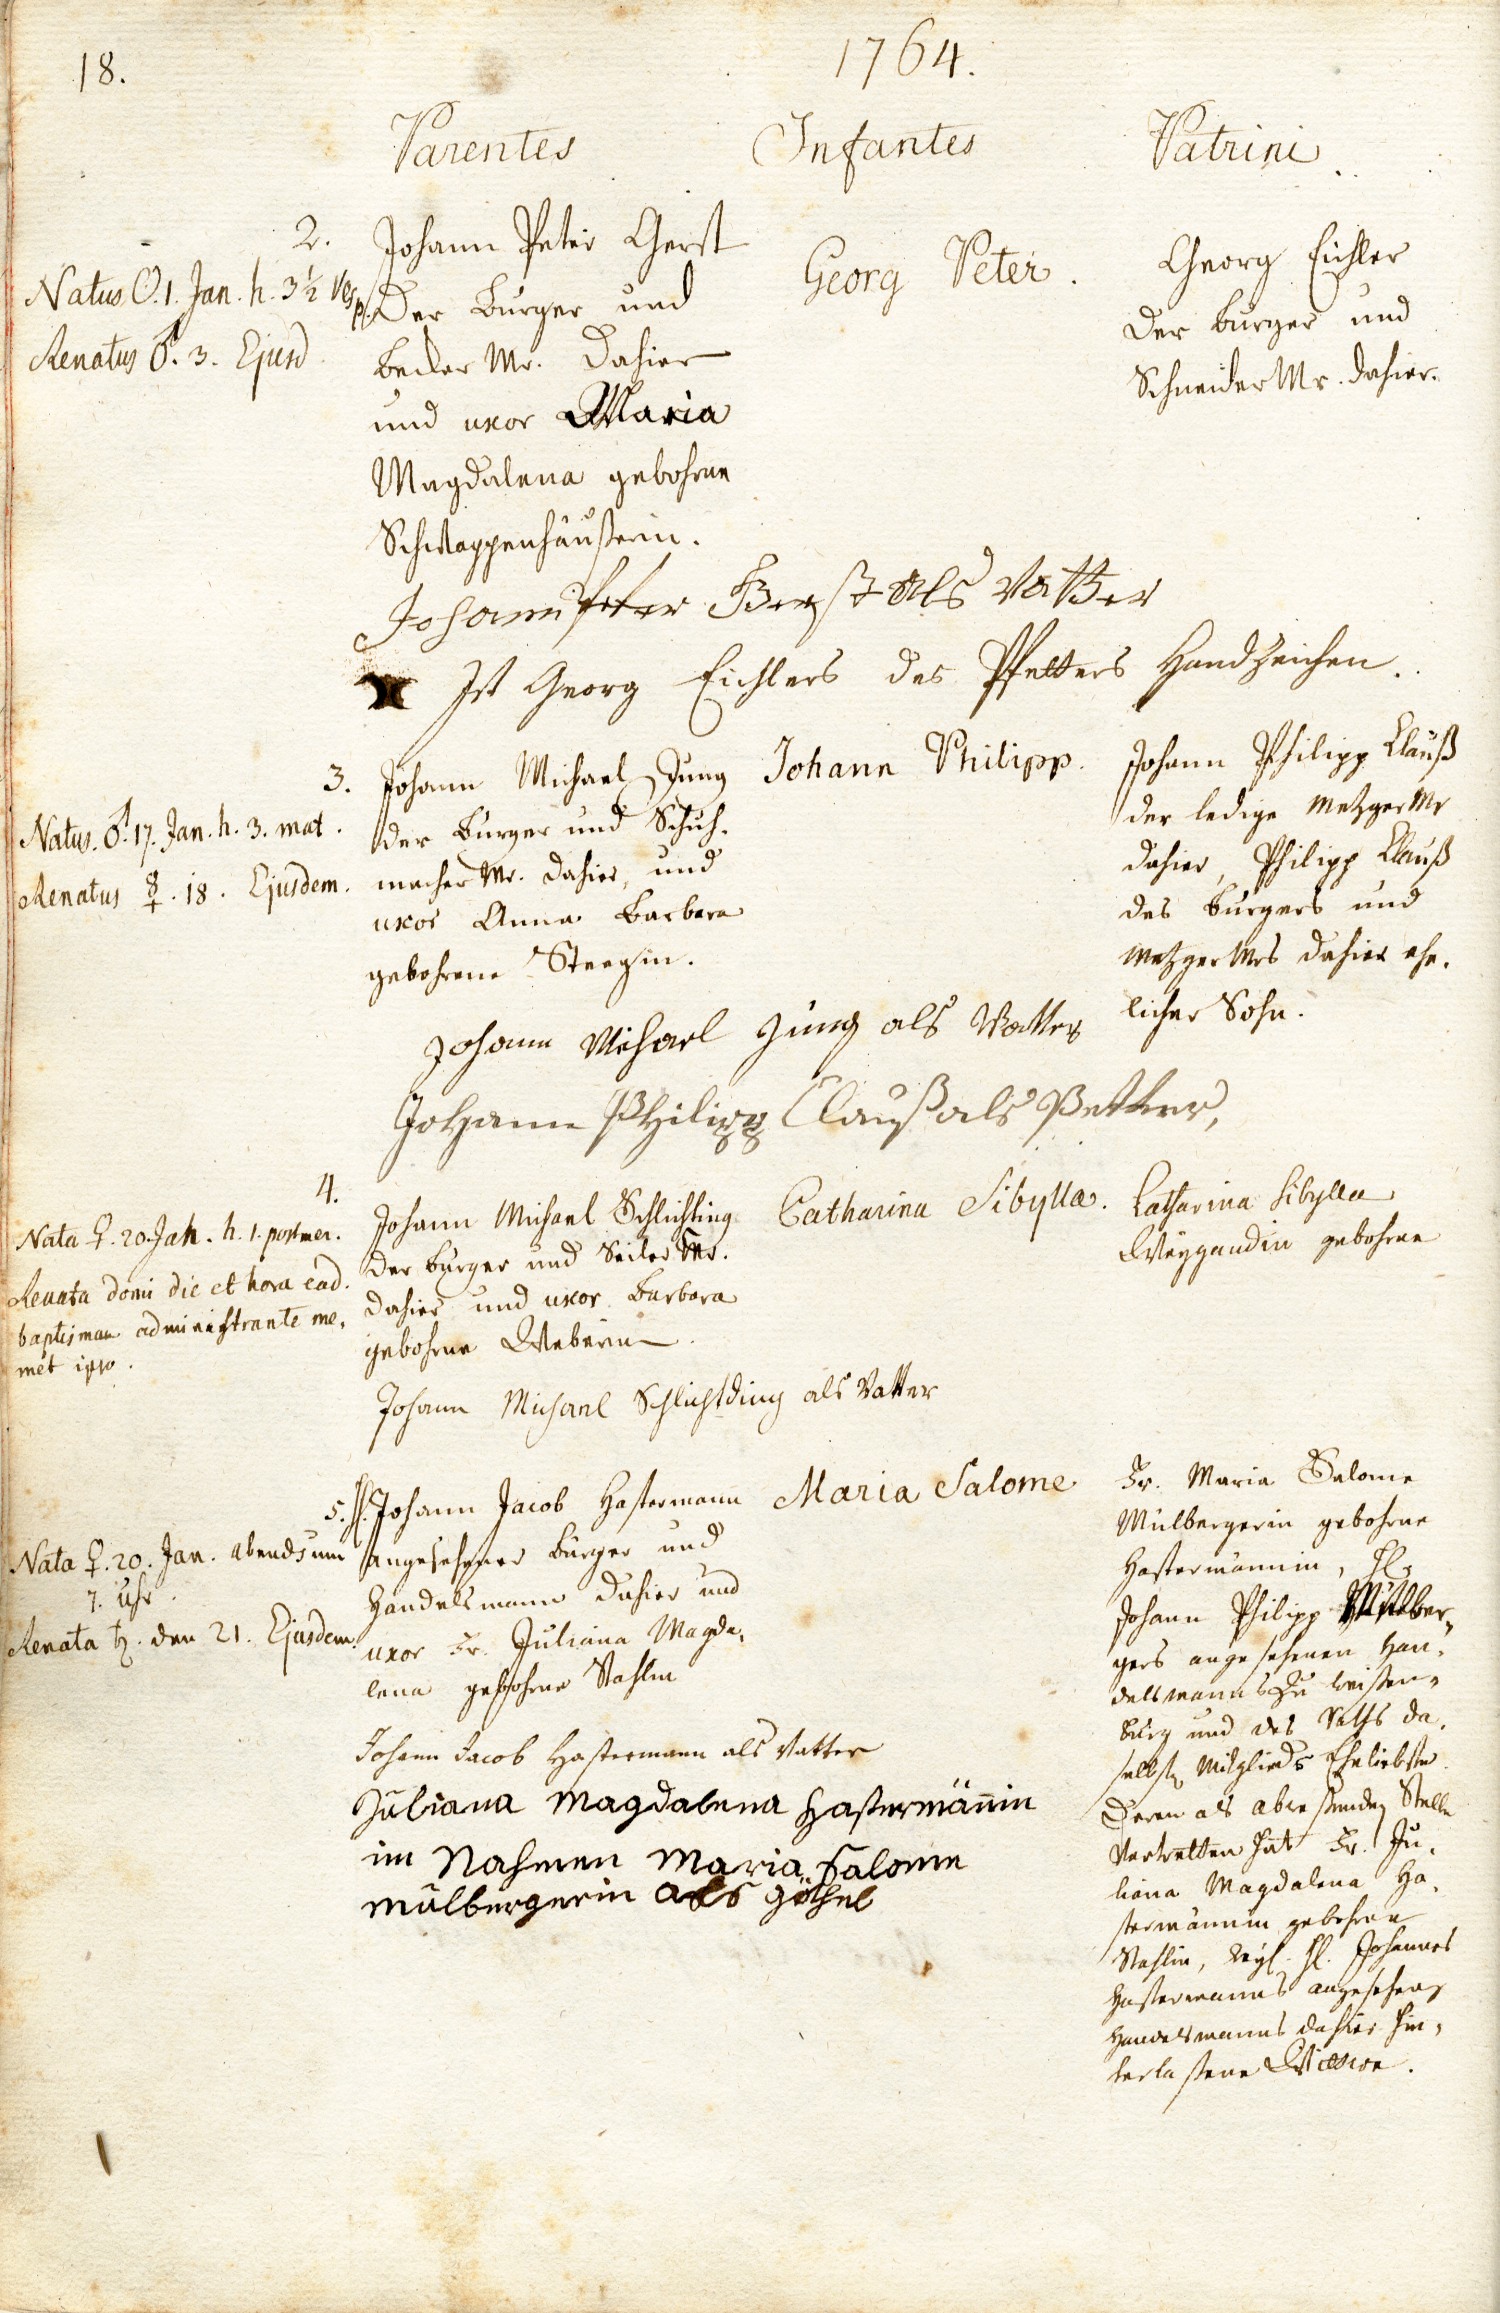 18.
1764.
Parentes
Infantes
Patrini.
2.
Natus ☉. 1. Jan. h. 3½ Vesp.
Renatus ♂. 3. Ejusd
Johann Peter Gerst
Der Burger und
Becker Mr. Dahier
und uxor Maria
Magdalena gebohrne
Schwappenhäußerin.
Georg Peter.
Georg Eichler
Der burger und
Schneider Mr. dahier.
Johann Peter Gerst als Vatter
Ist Georg Eichlers des Pfetters Handzeichen.
3.
Natus. ♂. 17. Jan. h. 3. mat.
Renatus ☿. 18. Ejusdem.
Johann Michael Jung
der Burger und Schuh-
macher Mr. dahier, und
uxor Anna Barbara
gebohrne
Johann Philipp.
Johann Philipp Clauß
der ledige Metzger Mr
dahier, Philipp Clauß
des burgers und
Metzger Mrs dahier ehe-
licher Sohn.
Johann Michael Jung als Vatter
Johann Philipp Clauß als Petter,
4.
Nata ♀. 20. Jan. h. 1. postmer.
Renata domi die et hora ead.
baptisman administrante me-
met ipso.
Johann Michael Schlichting
der burger und Seiler Mr.
dahier und uxor Barbara
gebohrne Weberin
Catharina Sibylla.
Catharina Sibylla
Weygandin gebohrne
Johann Michael Schlichtding als Vatter
5.
Nata ♀. 20. Jan. abends um
7. Uhr.
Renata ♄. den 21. Ejusdem.
H. Johann Jacob Hastermann
angesehener Burger und
Handelsmann dahier und
uxor Fr. Juliana Magda-
lena gebohrne Stahlin
Maria Salome
Fr. Maria Salome
Mülbergerin gebohrne
Hastermännin, H.
Johann Philipp Mülber-
gers angesehenen Han-
delsmanns zu Weisen-
burg und des Raths da-
selbst Mitglieds Eheliebste
Deren als abwesenden Stelle
Vertretten hat Fr. Ju-
liana Magdalena Ha-
stermännin gebohrne
Stahlin, weyl. H. Johannes
Hastermanns angesehenen
Handelsmanns dahier hin-
terlassene Wittwe.
Johann Jacob Hastermann als Vatter
Juliana Magdalena Hastermännin
im Nahmen Maria Salome
Mülbergerin als Göthel